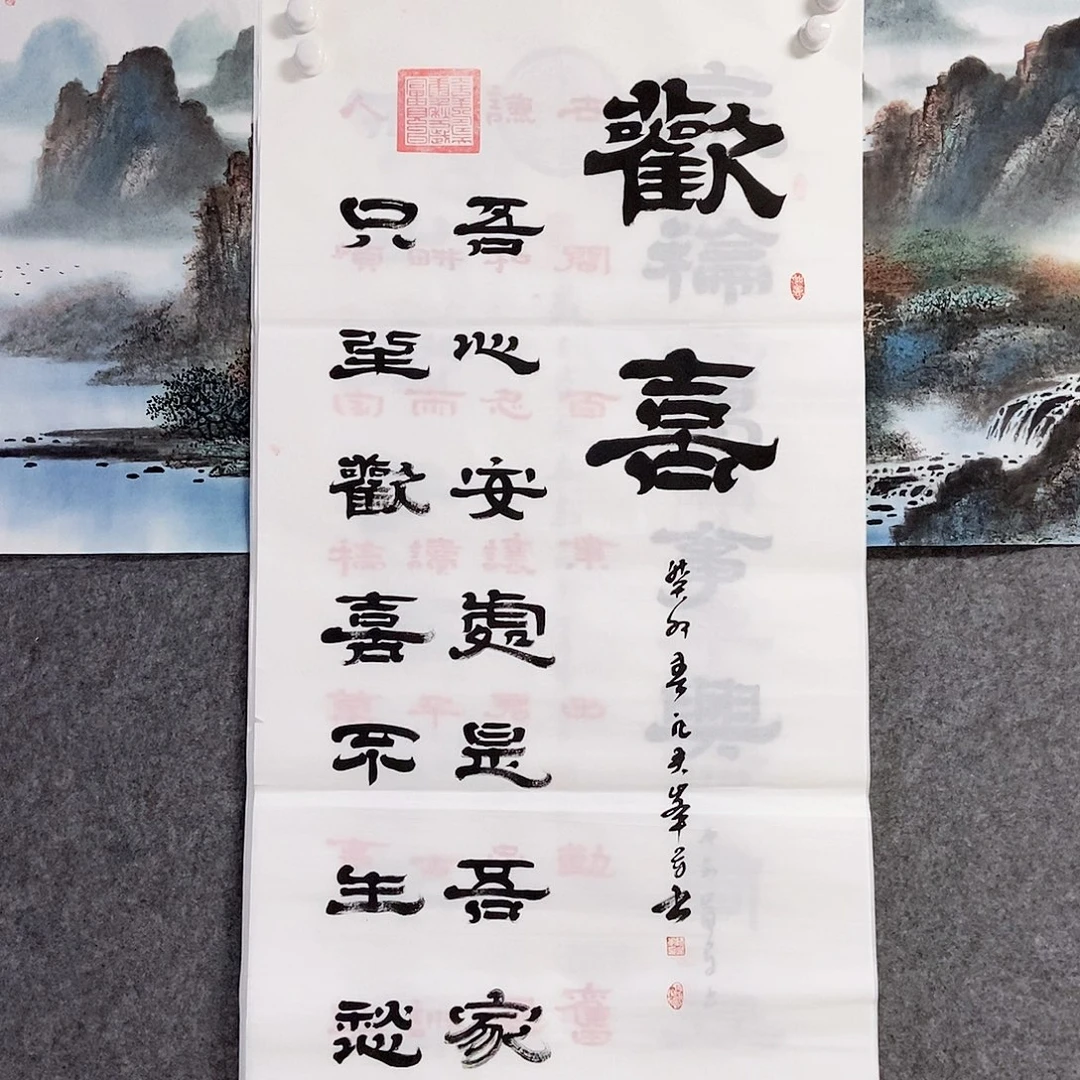 歡喜
癸卯春 書
吾心安處是吾家
只坐歡喜不生愁